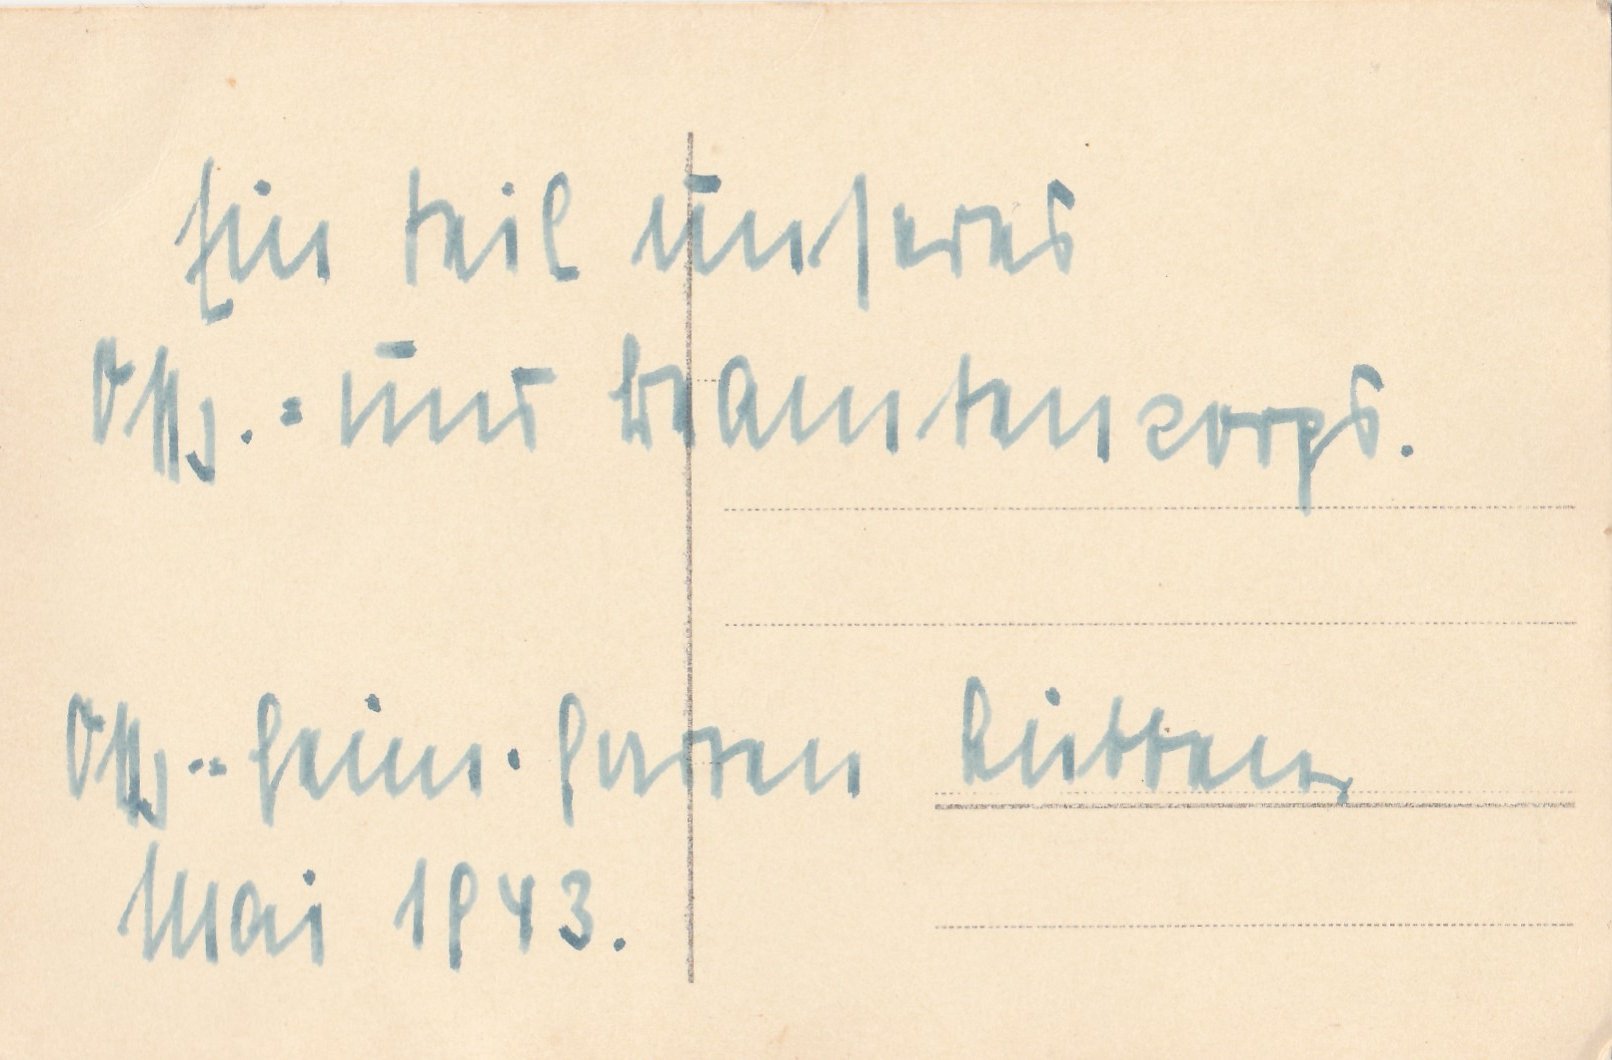 Ein teil unseres
Offz.= und beamtencorps.
Offz.=heim.
Mai 1943.